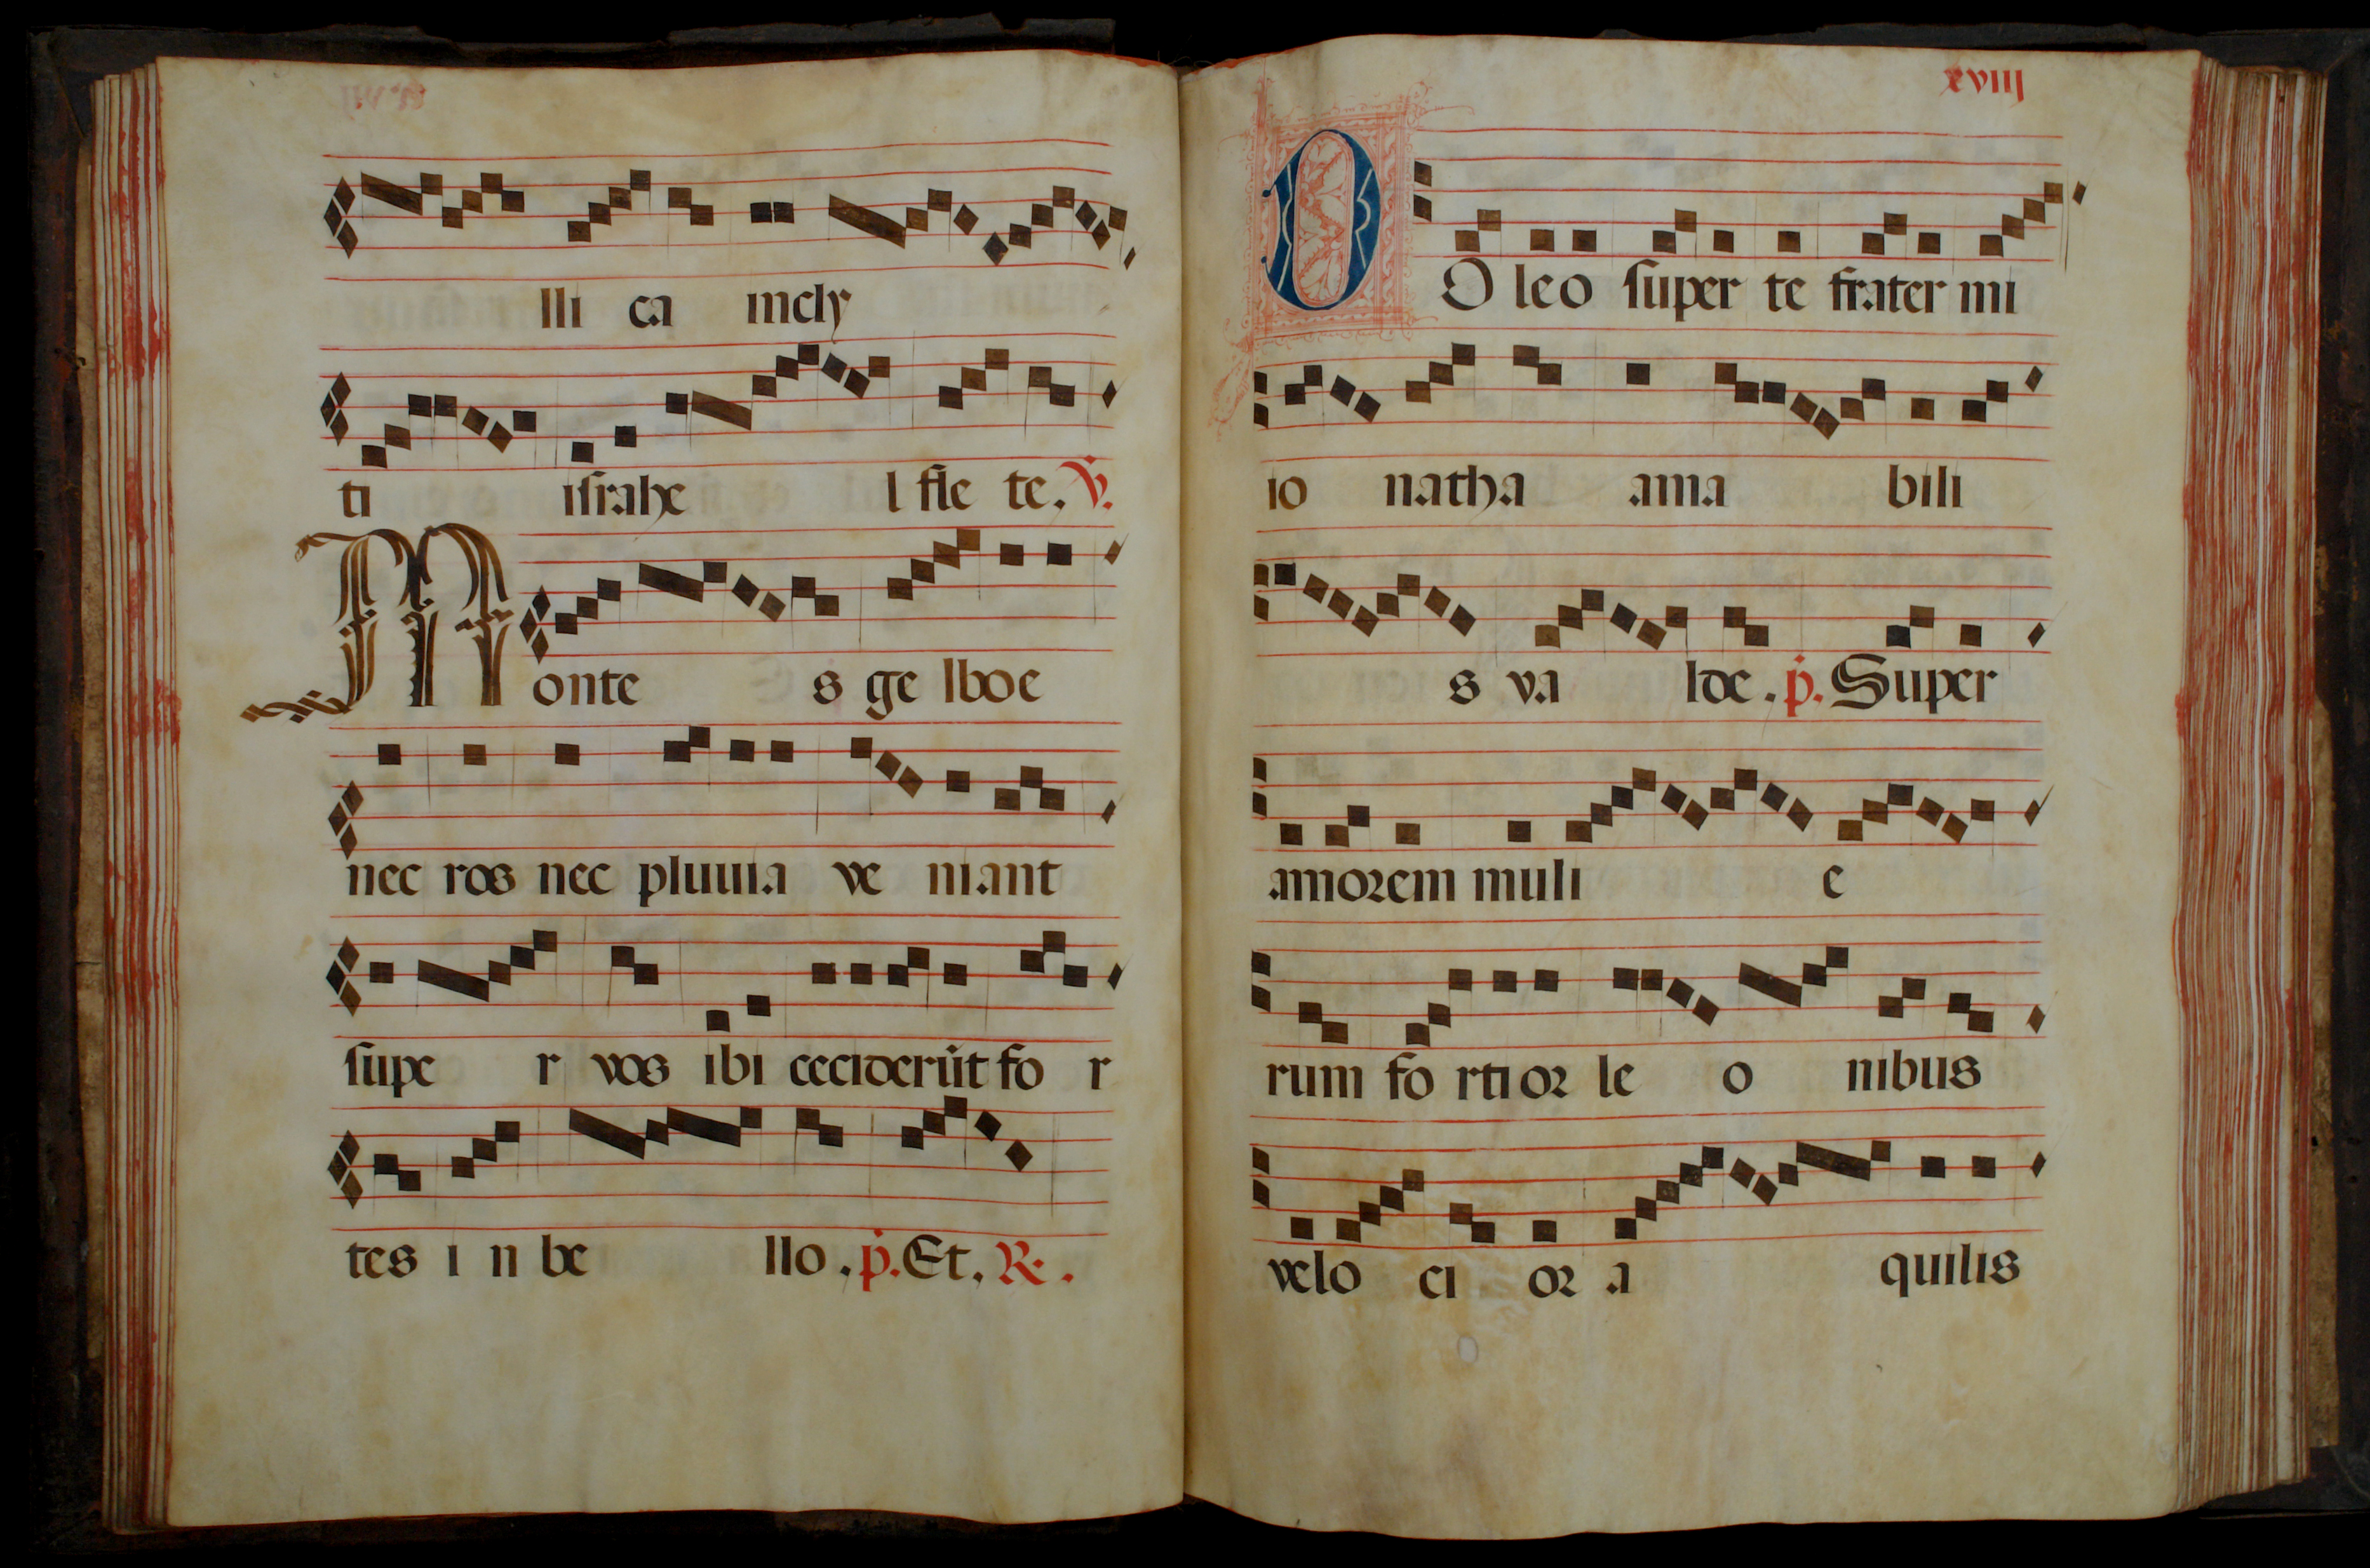 lli ca incly
ti israhe l fle te. V.
Monte s ge lboe
nec ros nec pluuia ve niant
supe r vos ibi ceciderūt fo r
tes i n be llo. p. Et. R.
xviii
DO leo super te frater mi
io natha ama bili
s va lde. p. Super
amorem muli e
rum fo rti or le o nibus
velo ci or a quilis